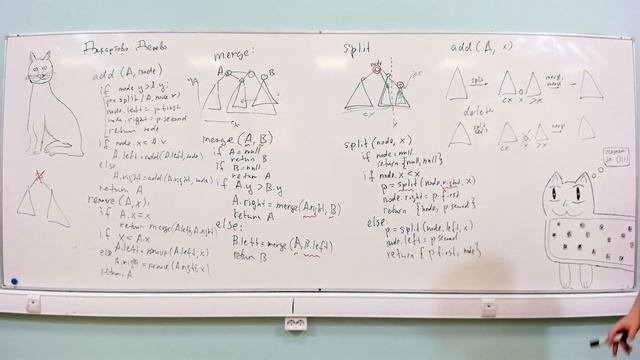 Декартово Дерево
add (A, node)
if node.y > A.y:
p = split (A, node.x)
node.left = p.first
node.right = p.second
return node
if node.x < A.x
A.left = add (A.left, node)
else
A.right = add (A.right, node)
return A
remove (A, x):
if A.x = x
return merge (A.left, A.right)
if x < A.x
A.left = remove (A.left, x)
else
A.right = remove (A.right, x)
return A
merge:
A
B
< x
merge (A, B)
if A = null
return B
if B = null
return A
if A.y > B.y
A.right = merge (A.right, B)
return A
else:
B.left = merge (A, B.left)
return B
split
node
< x
x
split (node, x)
if node = null
return {null, null}
if node.x < x
p = split (node.right, x)
node.right = p.first
return {node, p.second}
else:
p = split (node.left, x)
node.left = p.second
return {p.first, node}
add (A, x)
split
merge, merge
< x
x
> x
delete
split
merge
< x
x
> x